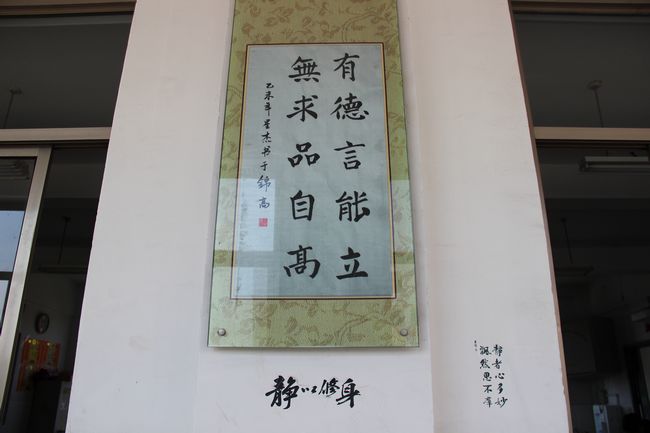 有德言能立
無求品自高
乙未年星杰书于錦高
静以修身
静者心多妙
飄然思不羣